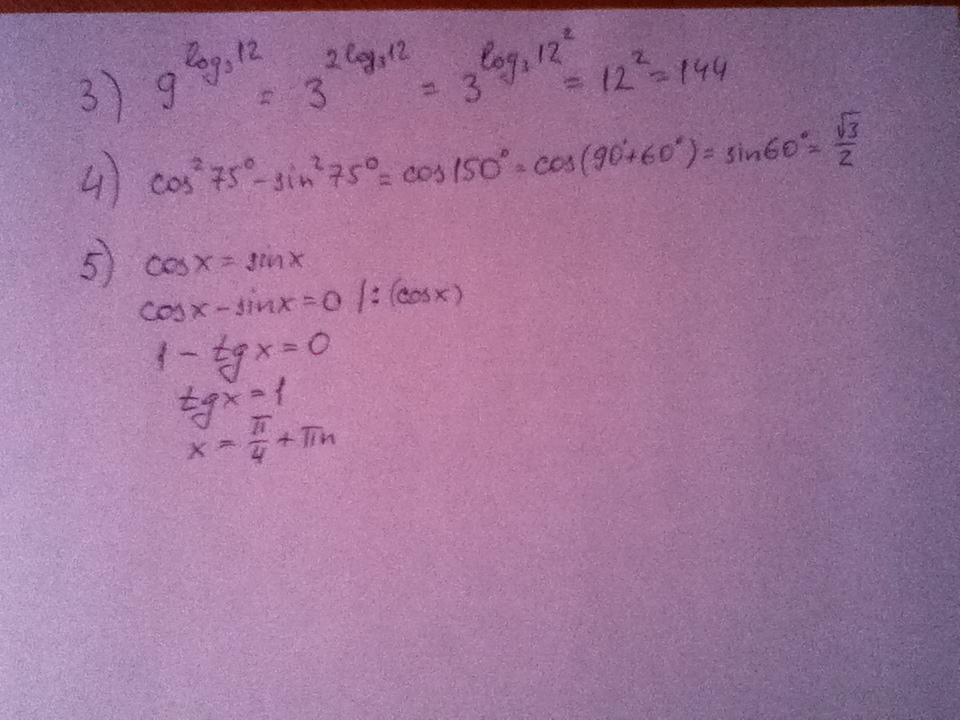 3) 9^{log₃12} = 3^{2log₃12} = 3^{log₃12²} = 12² = 144
4) cos²75° - sin²75° = cos150° = cos(90°+60°) = sin60° = √3/2
5) cosx = sinx
cosx - sinx = 0 /: (cosx)
1 - tgx = 0
tgx = 1
x = π/4 + πn